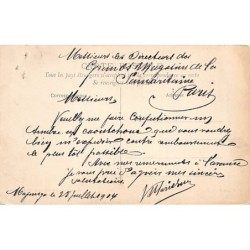 Messieurs les Directeurs des
Grands Magasins de la
Samaritaine
Paris
Messieurs
Veuillez me faire confectionner un
timbre en caoutchouc que vous voudrez
bien m'expédier contre remboursement
le plus tôt possible
Avec mes remerciements à l'avance
je vous prie d'agréer mes sincères
salutations
le 25 juillet 1914